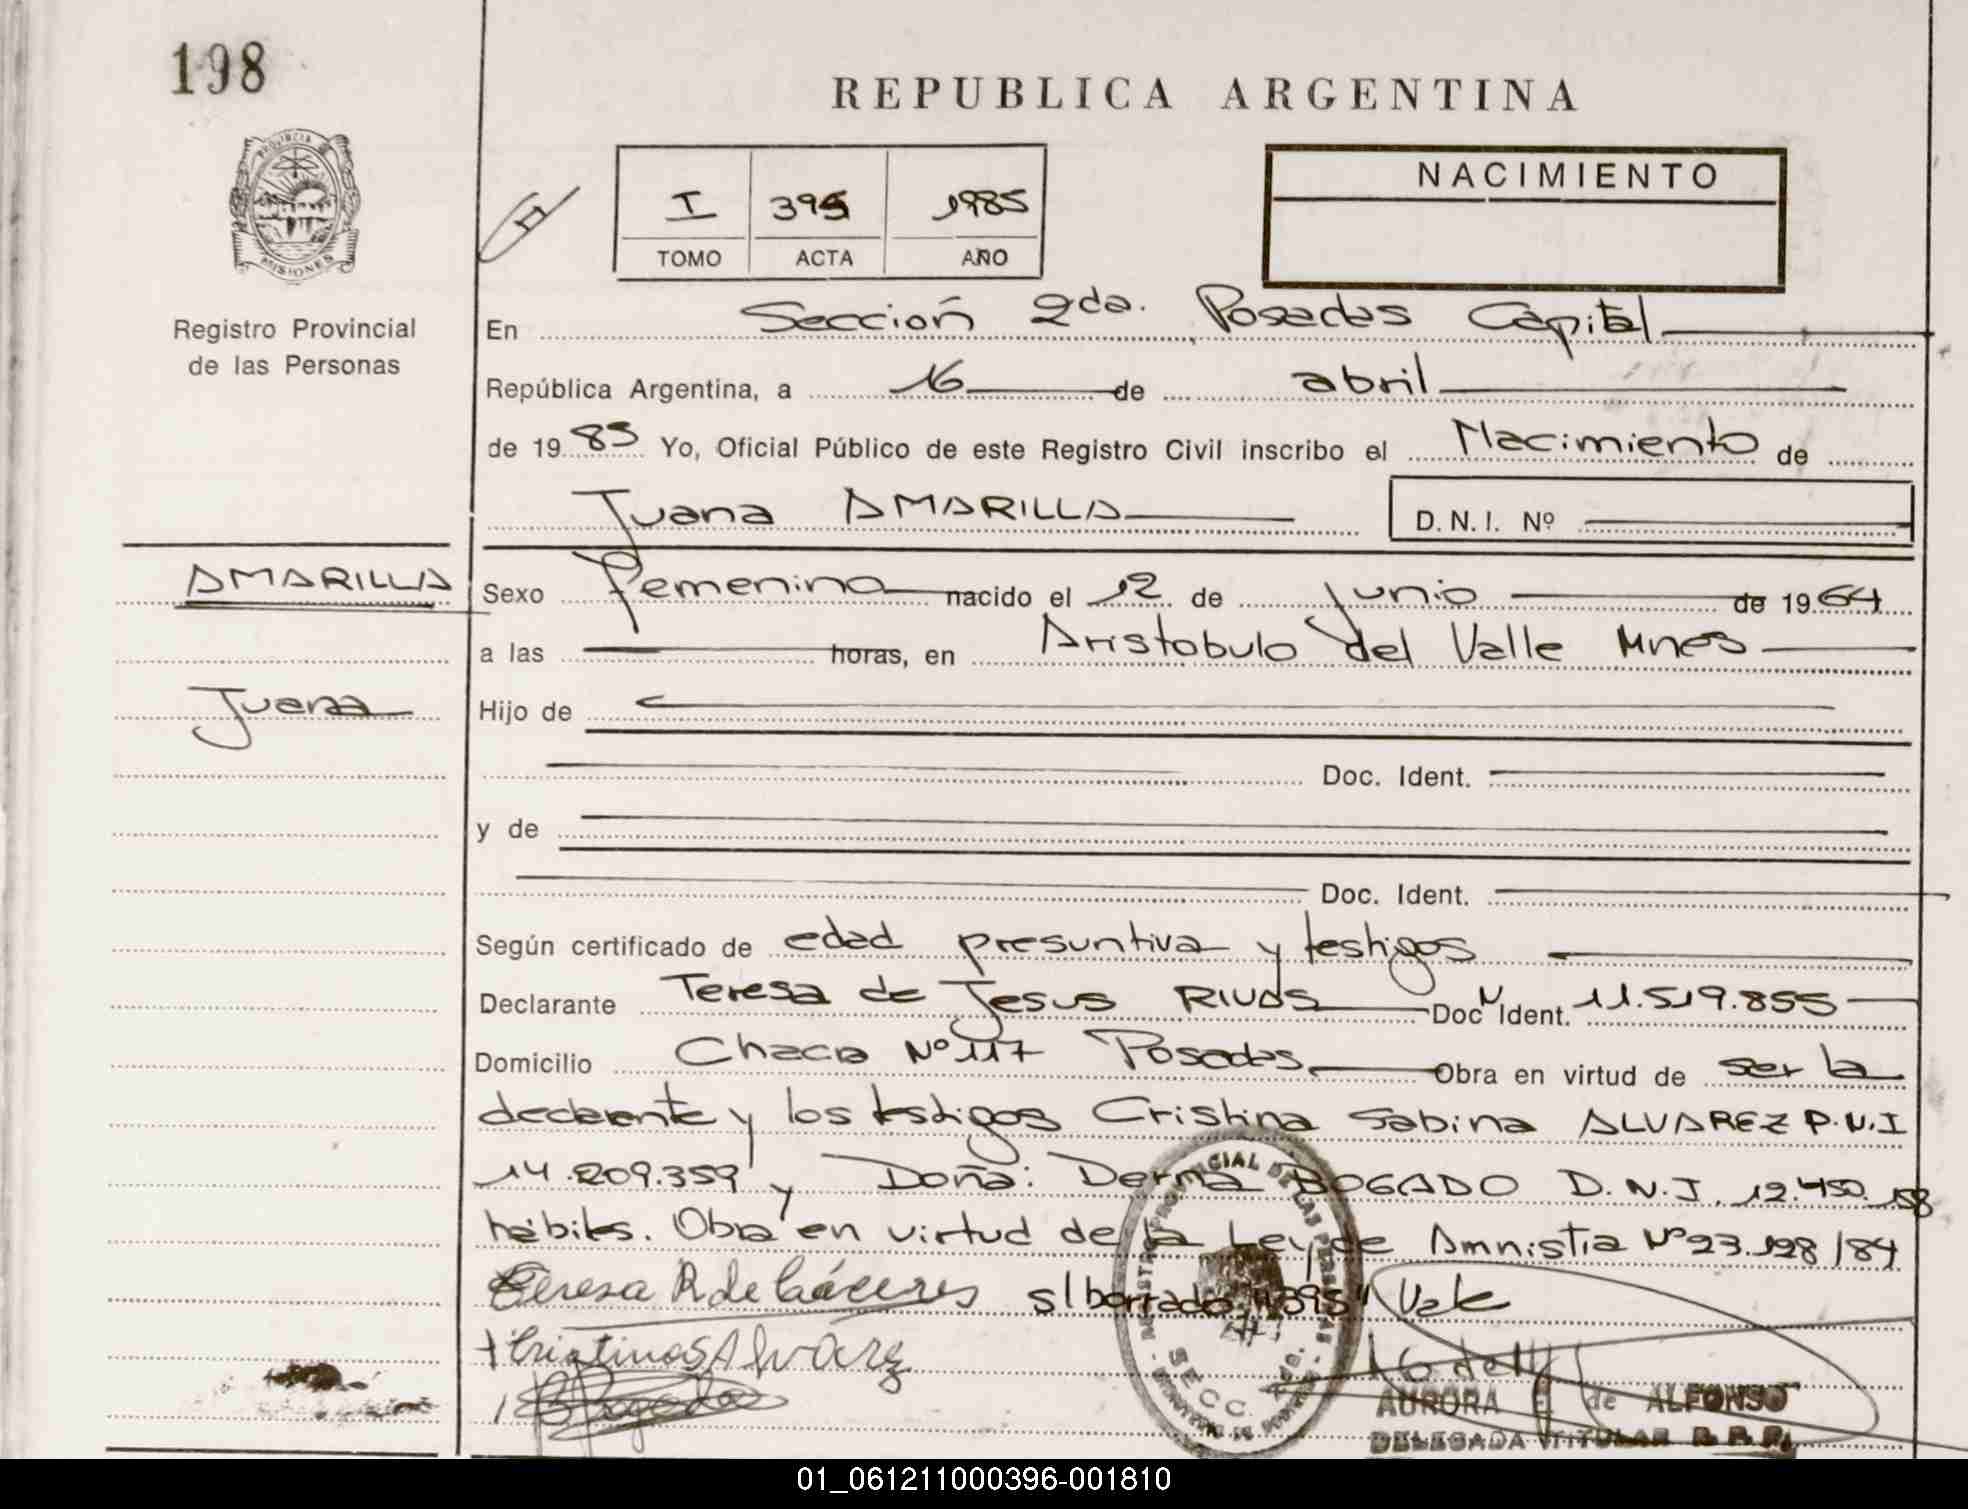 198
REPUBLICA ARGENTINA
PROVINCIA DE
MISIONES
Registro Provincial
de las Personas
I 395 1985
TOMO ACTA AÑO
NACIMIENTO
En Sección 2da. Posadas Capital
República Argentina, a 16 de abril
de 1985 Yo, Oficial Público de este Registro Civil inscribo el Nacimiento de
Juana AMARILLA D.N.I. Nº
AMARILLA
Juana
Sexo femenino nacido el 12 de junio de 1964
a las horas, en Aristobulo del Valle Mnes
Hijo de
Doc. Ident.
y de
Doc. Ident.
Según certificado de edad presuntiva y testigos
Declarante Teresa de Jesus RIVAS Doc N Ident. 11.519.855
Domicilio Chaca Nº 117 Posadas Obra en virtud de ser la
declarante y los testigos Cristina Sabina ALVAREZ D.N.I
14.209.359 y Doña: Derma BOGADO D.N.I. 12.450.158
hábiles. Obra en virtud de la Ley de Amnistia Nº 23.128/84
Teresa R de Cáceres s/borrado "395" Vale
Cristina S Alvarez
Bogado
AURORA E. de ALFONSO
DELEGADA TITULAR R. P. P.
01_061211000396-001810